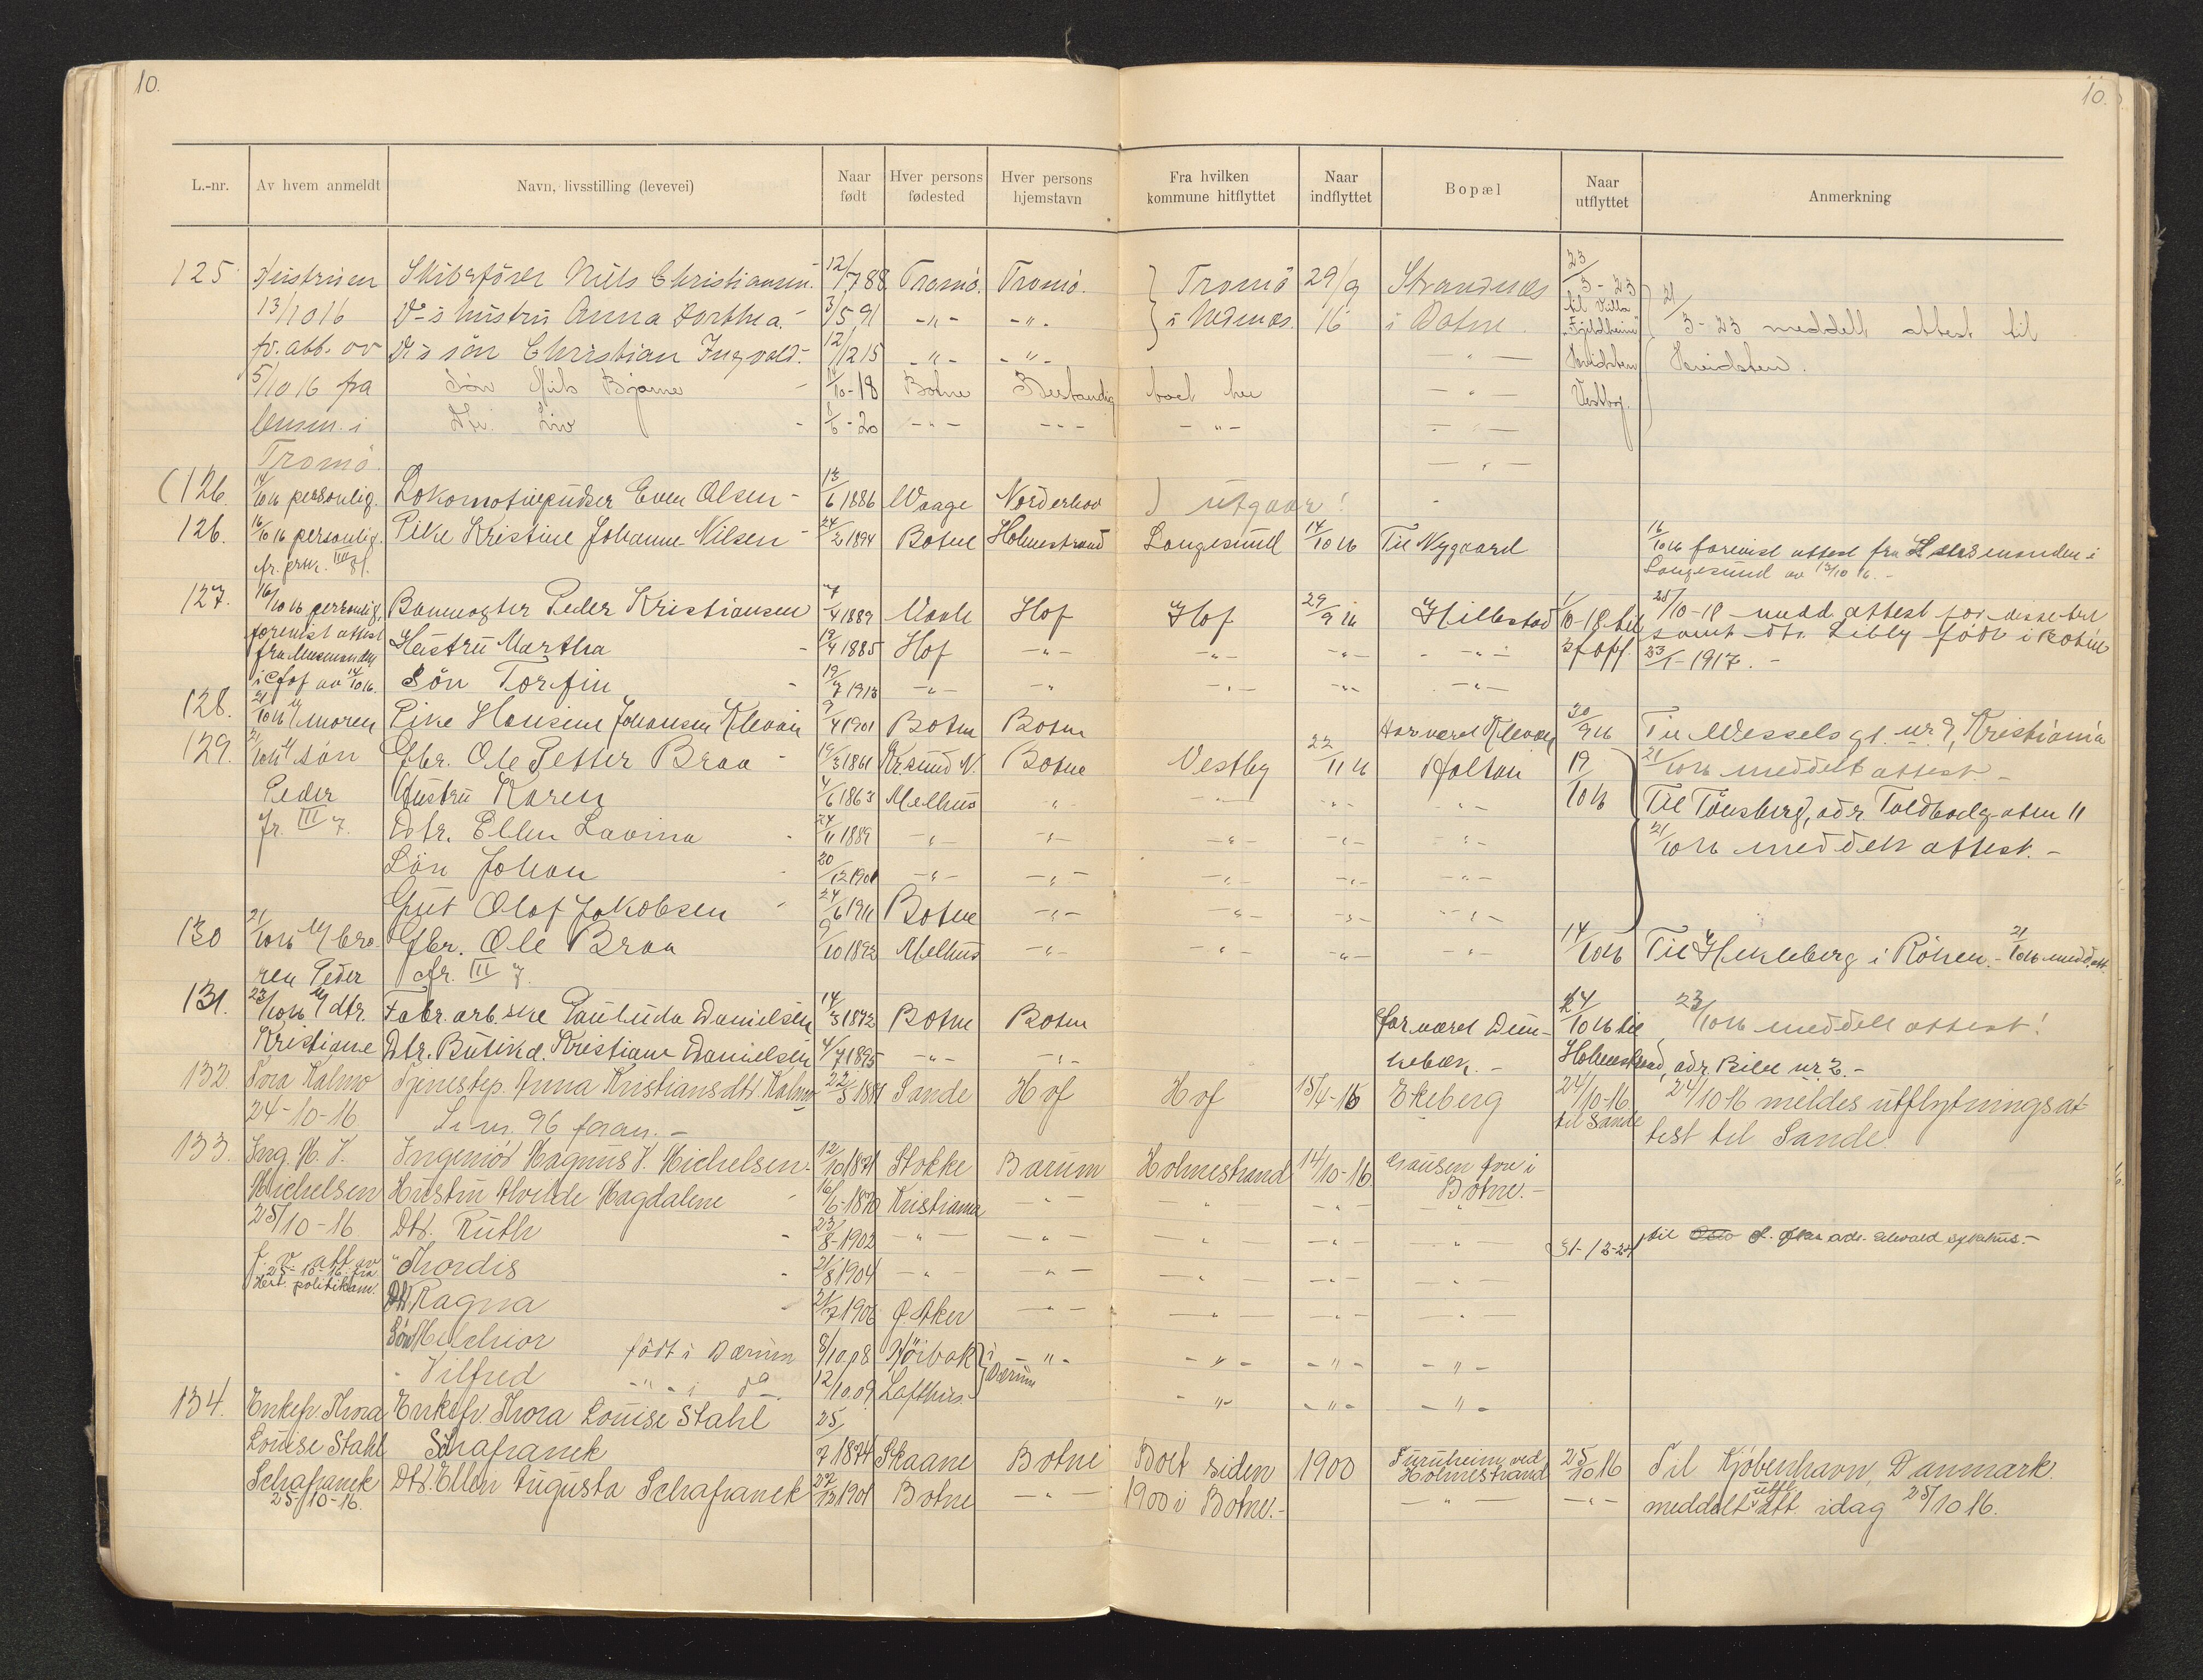 10.
10.
L.-nr. Av hvem anmeldt Navn, livsstilling (levevei) Naar født Hver persons fødested Hver persons hjemstavn Fra hvilken kommune hitflyttet Naar indflyttet Bopæl Naar utflyttet Anmerkning
125 Hustruen Skibsfører Nils Christiansen. 12/7 88 Tromö. Tromö. Tromö 29/9 Strandnæs 23/3-23
13/10 16 Do s hustru Anna Dorthea. 3/5 91 -"- -"- i Nedenæs. 16 i Botne til Villa 21/3-23 meddelt attest til
fr. att. av Do s sön Christian Ingvald. 12/12 15 -"- -"- -"- "Fjeldheim" Hvidsten.
5/10 16 fra Sön Nils Bjarne /10-18 Botne Bestandig boet her -"- Hvidsten
lensm. i Dtr. Liv /6-20 -"- -"- -"- -"- Vestby.
Tromö. -"-
(126. 14/10 16 personlig. Lokomotivpudser Even Olsen 13/6 1886 Waage Norderhov ) utgaar!
126. 16/10 16 personlig. Pike Kristine Johanne Nilsen 24/2 1894 Botne Holmestrand Langesund 14/10 16 Til Nygaard 16/10 16 forevist attest fra lensmanden i
Langesund av 13/10 16.-
127. 16/10 16 personlig, Banevogter Peder Kristiansen 7/4 1889 Hof Hof 29/9 16 Hillestad 1/10-18 til 25/10-18 medd. attest for disse tre
forevist attest Hustru Martha 19/4 1885 Hof -"- -"- -"- -"- samt dtr. Libly född i Botne
i Hof av 14/10 16. Sön Torfin 19/7 1913 -"- -"- -"- -"- -"- 23/1-1917.-
128. 21/10 16 v/ moren Pike Hansine Johansen Klevan 9/4 1901 Botne Botne Harvard Klevan 30/9 16 Til Wessels gt. nr 9, Kristiania
129. 21/10 16 v/ sön Gbr. Ole Petter Braa 19/3 1861 Kr.sund N. Botne Vestby 22/11 16 Holtan 19/10 16 21/10 16 meddelt attest.-
Peder Hustru Karen 4/6 1863 Melhus -"- -"- -"- -"- Til Tönsberg, adr. Toldbodgaten 11
fr. III 7. Dtr. Ellen Lovina 24/11 1889 -"- -"- -"- -"- -"- 21/10 16 meddelt attest.-
Sön Johan 30/12 1901 -"- -"- -"- -"- -"-
Gut Olaf Jakobsen 24/6 1911 Botne -"- -"- -"- -"-
130 21/10 16 v/ bro- Gbr. Ole Braa 9/10 1892 Melhus -"- -"- -"- -"- 14/10 16 Til Hekleberg i Röken.- 21/10 16 medd. att.
ren Peder fr. III 7.
131. 23/10 16 v/ dtr. Fabr.arb.ske Paulinda Danielsen 14/3 1872 Botne Botne forværet Dun- 24/10 16 til 23/10 16 meddelt attest!
Kristiane Dtr. Butikd. Kristiane Danielsen 4/7 1895 -"- -"- kebæk.- Holmestrand, adr. nr 2.-
132. Kalmo Tjenestep. Anna Kristiansdtr. Kalmo 22/5 1881 Sande Hof Hof 15/4-16 Ekeberg 24/10-16 24/10 16 meldes utflytningsat-
24-10-16 Lnr. 96 foran.- til Sande test til Sande.
133. Ing. M. V. Ingeniör Magnus V. Michelsen. 12/10 1871 Stokke Barum Holmestrand 14/10-16 Gausen fra i
Michelsen Hustru Magdalene 16/6-1870 Kristiania -"- -"- -"- Botne.-
25/10-16 Dtr. Ruth 23/8-1902 -"- -"- -"- -"- -"- 31-12-24 til adr. sykehus.-
f.v. att av " Thordis 21/8 1904 -"- -"- -"- -"- -"-
25-10-16 fra Dtr. Ragna 21/7 1906 Ø. Aker -"- -"- -"- -"-
Hest. politikam.
Sön Melchior född i Bærum 8/10.08 Höivak i Bærum -"- -"- -"- -"-
- Vilfred -"- i do 12/10.09 Lofthus -"- -"- -"-
134. Enkefr. Thora Enkefr. Thora Louise Stahl 25/
Louise Stahl Schafranek 7 1874 Skaane Botne Boet siden 1900 Furuheim ved Holmestrand 25/10 16 Til Kjøbenhavn, Danmark.
Schafranek Dtr. Ellen Augusta Schafranek 27/12 1901 Botne -"- 1900 i Botne.- -"- -"- meddelt utfl. att. idag 25/10 16.
25/10-16.